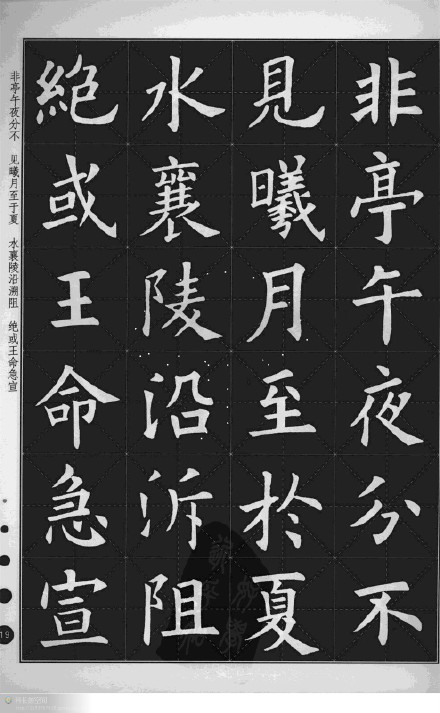 非亭午夜分不
見曦月至於夏
水襄陵沿泝阻
絶或王命急宣
非亭午夜分不 见曦月至于夏 水襄陵沿溯阻 绝或王命急宣
19